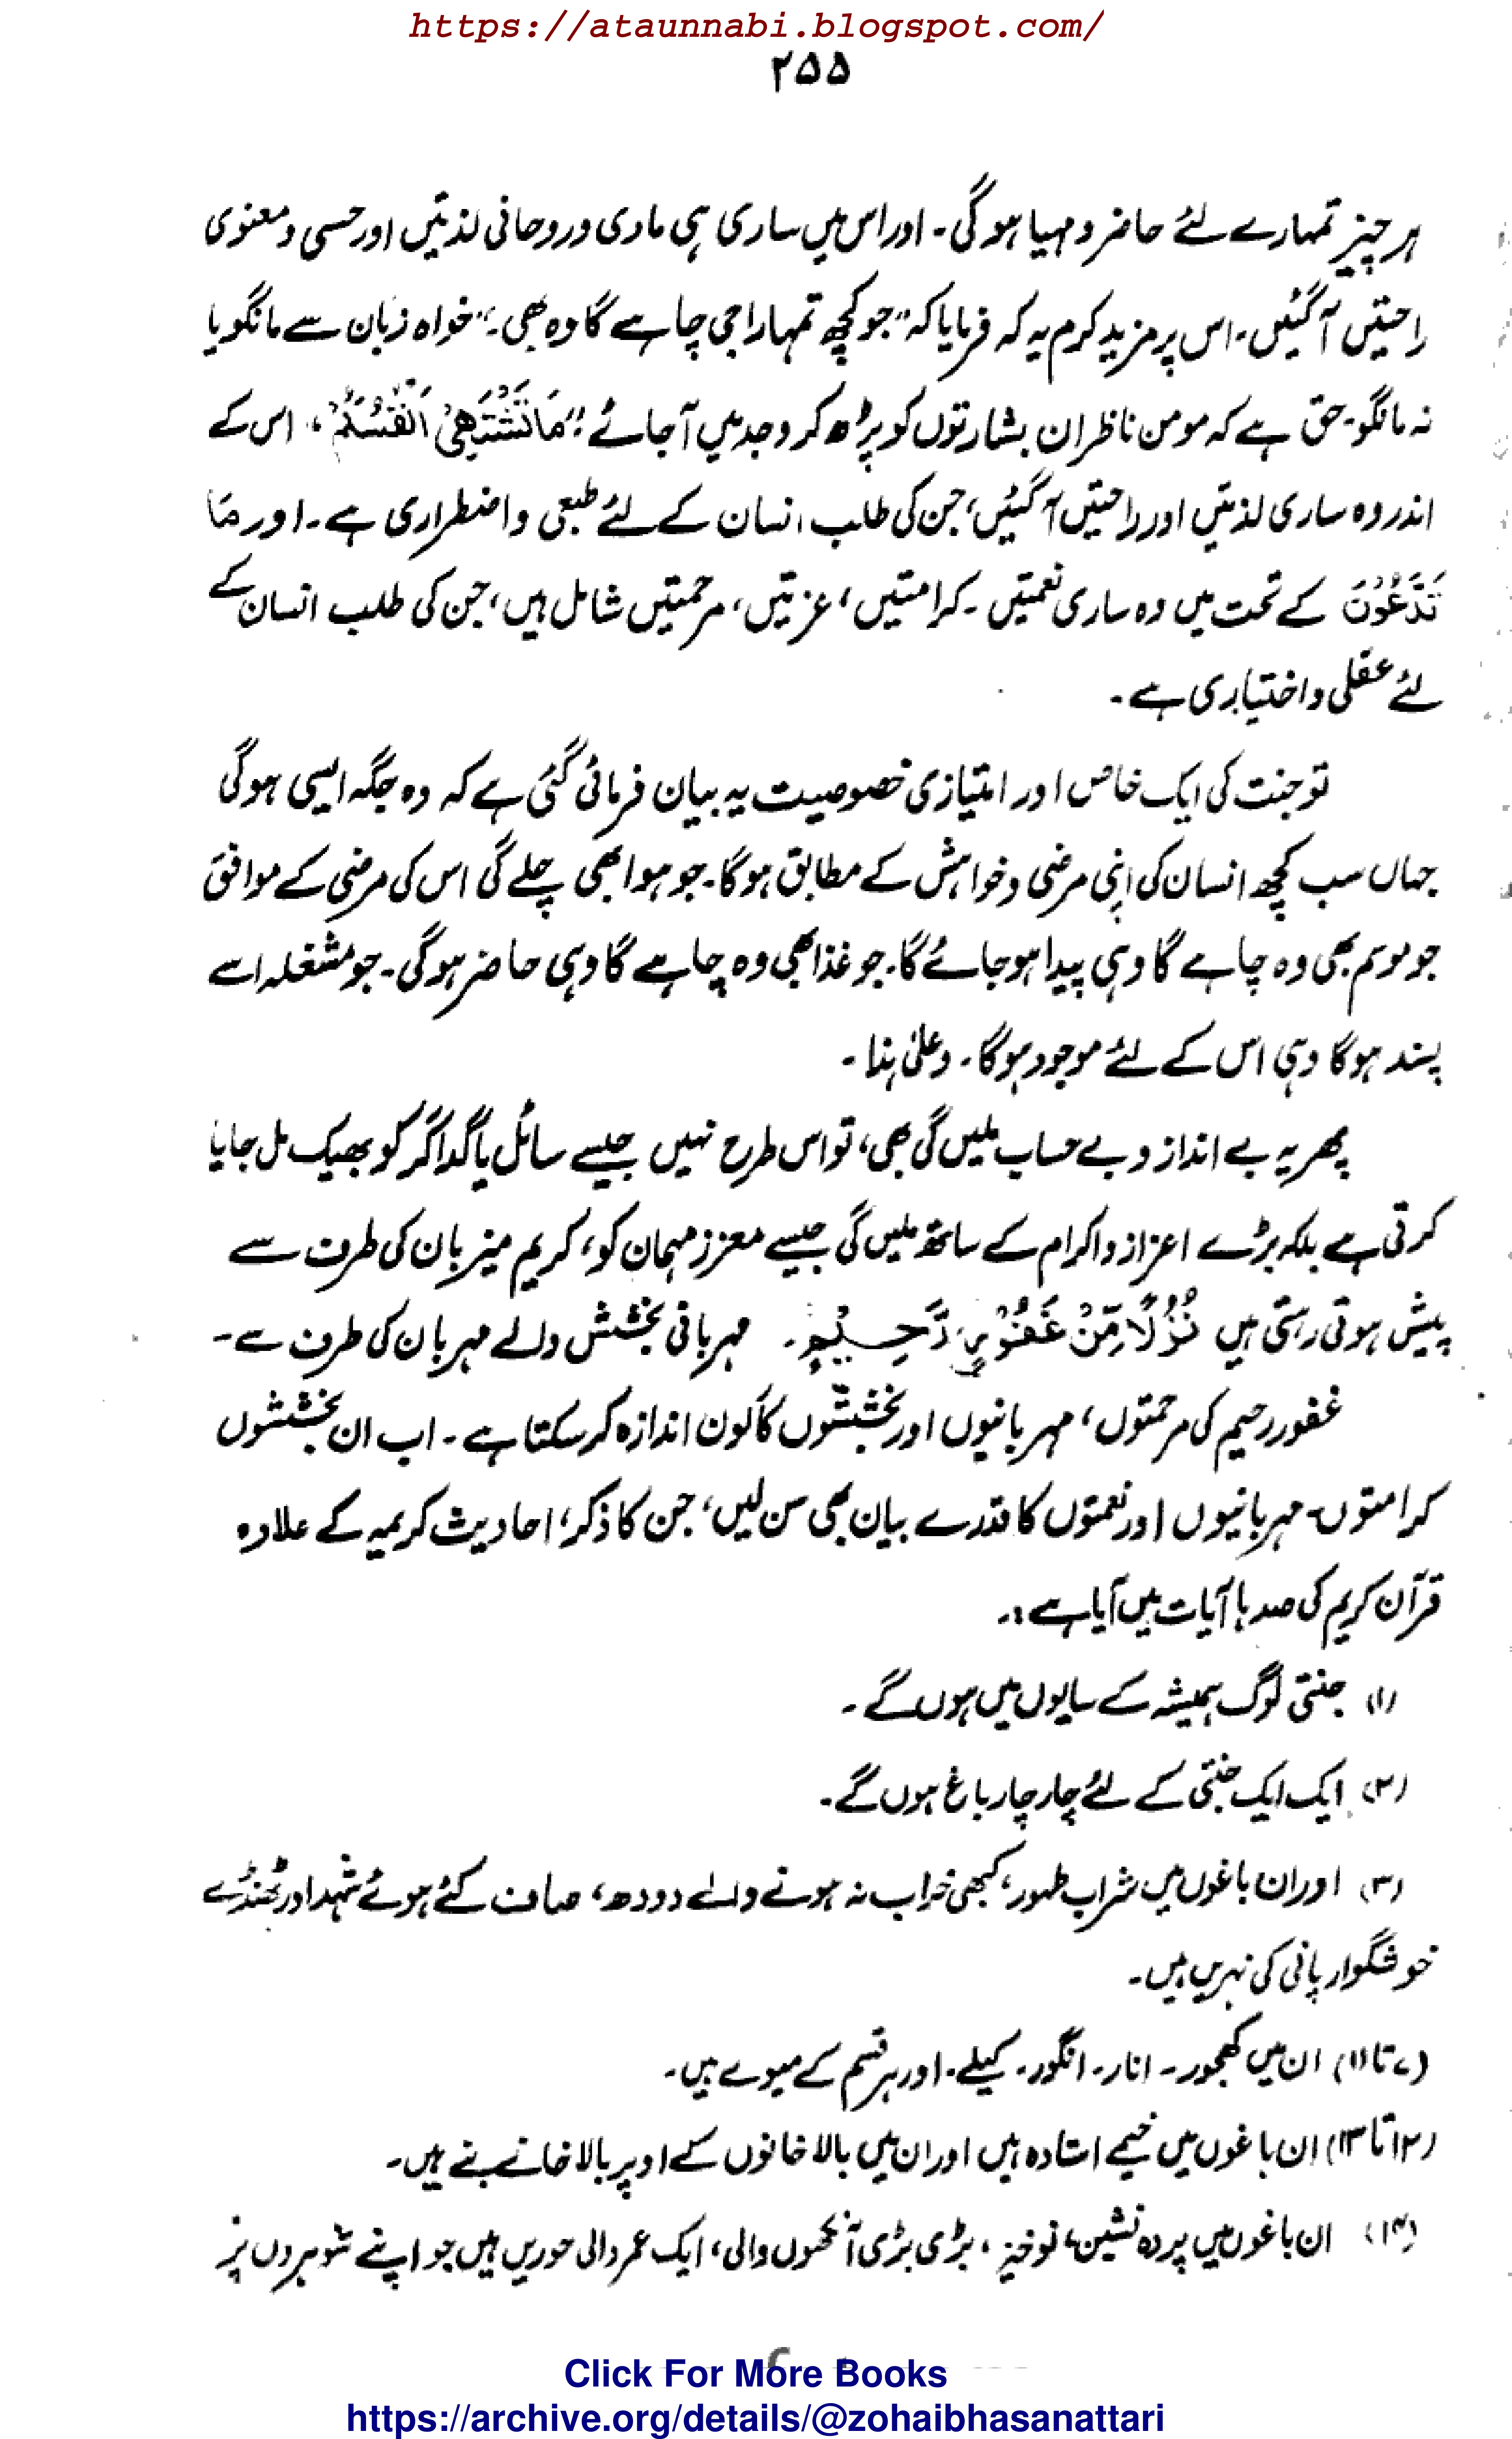 https://ataunnabi.blogspot.com/
۲۵۵
ہر چیز تمہارے لئے حاضر و مہیا ہوگی۔ اور اس میں ساری ہی مادی و روحانی لذتیں اور حسی و معنوی
راحتیں آگئیں۔ اس پر مزید کرم یہ کہ فرمایا کہ "جو کچھ تمہارا جی چاہے گا وہ بھی۔" خواہ زبان سے مانگو یا
نہ مانگو۔ حق ہے کہ مومن ناظر ان بشارتوں کو پڑھ کر وجد میں آجائے "مَا تَشْتَهِیْ اَنْفُسُكُمْ، اس کے
اندر وہ ساری لذتیں اور راحتیں آگئیں، جن کی طلب انسان کے لئے طبعی و اضطراری ہے۔ اور مَا
تَدَّعُوْنَ کے تحت میں وہ ساری نعمتیں۔ کرامتیں، عزتیں، مرحمتیں شامل ہیں، جن کی طلب انسان کے
لئے عقلی و اختیاری ہے۔
تو جنت کی ایک خاص اور امتیازی خصوصیت یہ بیان فرمائی گئی ہے کہ وہ جگہ ایسی ہوگی
جہاں سب کچھ انسان کی اپنی مرضی و خواہش کے مطابق ہوگا۔ جو ہوا بھی چلے گی اس کی مرضی کے موافق
جو موسم بھی وہ چاہے گا وہی پیدا ہو جائے گا۔ جو غذا بھی وہ چاہے گا وہی حاضر ہوگی۔ جو مشغلہ اسے
پسند ہوگا وہی اس کے لئے موجود ہوگا۔ وعلیٰ ہذا۔
پھر یہ بے انداز و بے حساب ملیں گی بھی، تو اس طرح نہیں جیسے سائل یا گداگر کو بھیک مل جایا
کرتی ہے بلکہ بڑے اعزاز و اکرام کے ساتھ ملیں گی جیسے معزز مہمان کو، کریم میزبان کی طرف سے
پیش ہوتی رہتی ہیں نُزُلًا مِّنْ غَفُوْرٍ رَّحِیْمٍ۔ مہربانی بخشش والے مہربان کی طرف سے۔
غفور رحیم کی مرحمتوں، مہربانیوں اور بخششوں کا کون اندازہ کر سکتا ہے۔ اب ان بخششوں
کرامتوں۔ مہربانیوں اور نعمتوں کا قدرے بیان بھی سن لیں، جن کا ذکر، احادیث کریمہ کے علاوہ
قرآن کریم کی صدہا آیات میں آیا ہے:۔
(۱) جنتی لوگ ہمیشہ کے سایوں میں ہوں گے۔
(۲) ایک ایک جنتی کے لئے چار چار باغ ہوں گے۔
(۳) اور ان باغوں میں شراب طہور، کبھی خراب نہ ہونے والے دودھ، صاف کئے ہوئے شہد اور ٹھنڈے
خوشگوار پانی کی نہریں ہیں۔
(۷ تا ۱۱) ان میں کھجور۔ انار۔ انگور۔ کیلے۔ اور ہر قسم کے میوے ہیں۔
(۱۲ تا ۱۳) ان باغوں میں خیمے استادہ ہیں اور ان میں بالا خانوں کے اوپر بالا خانے بنے ہیں۔
(۱۴) ان باغوں میں پردہ نشین، نوخیز، بڑی بڑی آنکھوں والی، ایک عمر والی حوریں ہیں جو اپنے شوہروں پر
Click For More Books
https://archive.org/details/@zohaibhasanattari